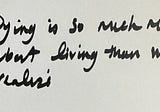 Dying is so much m
about living than w
realize